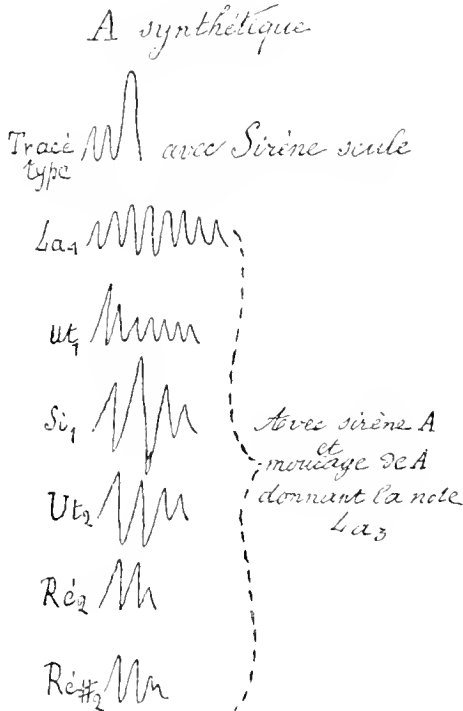 A synthétique
Tracé
type
avec Sirène seule
La₁
ut₁
Si₁
Ut₂
Ré₂
Ré#₂
Avec sirène A
et
moulage de A
donnant la note
La₃